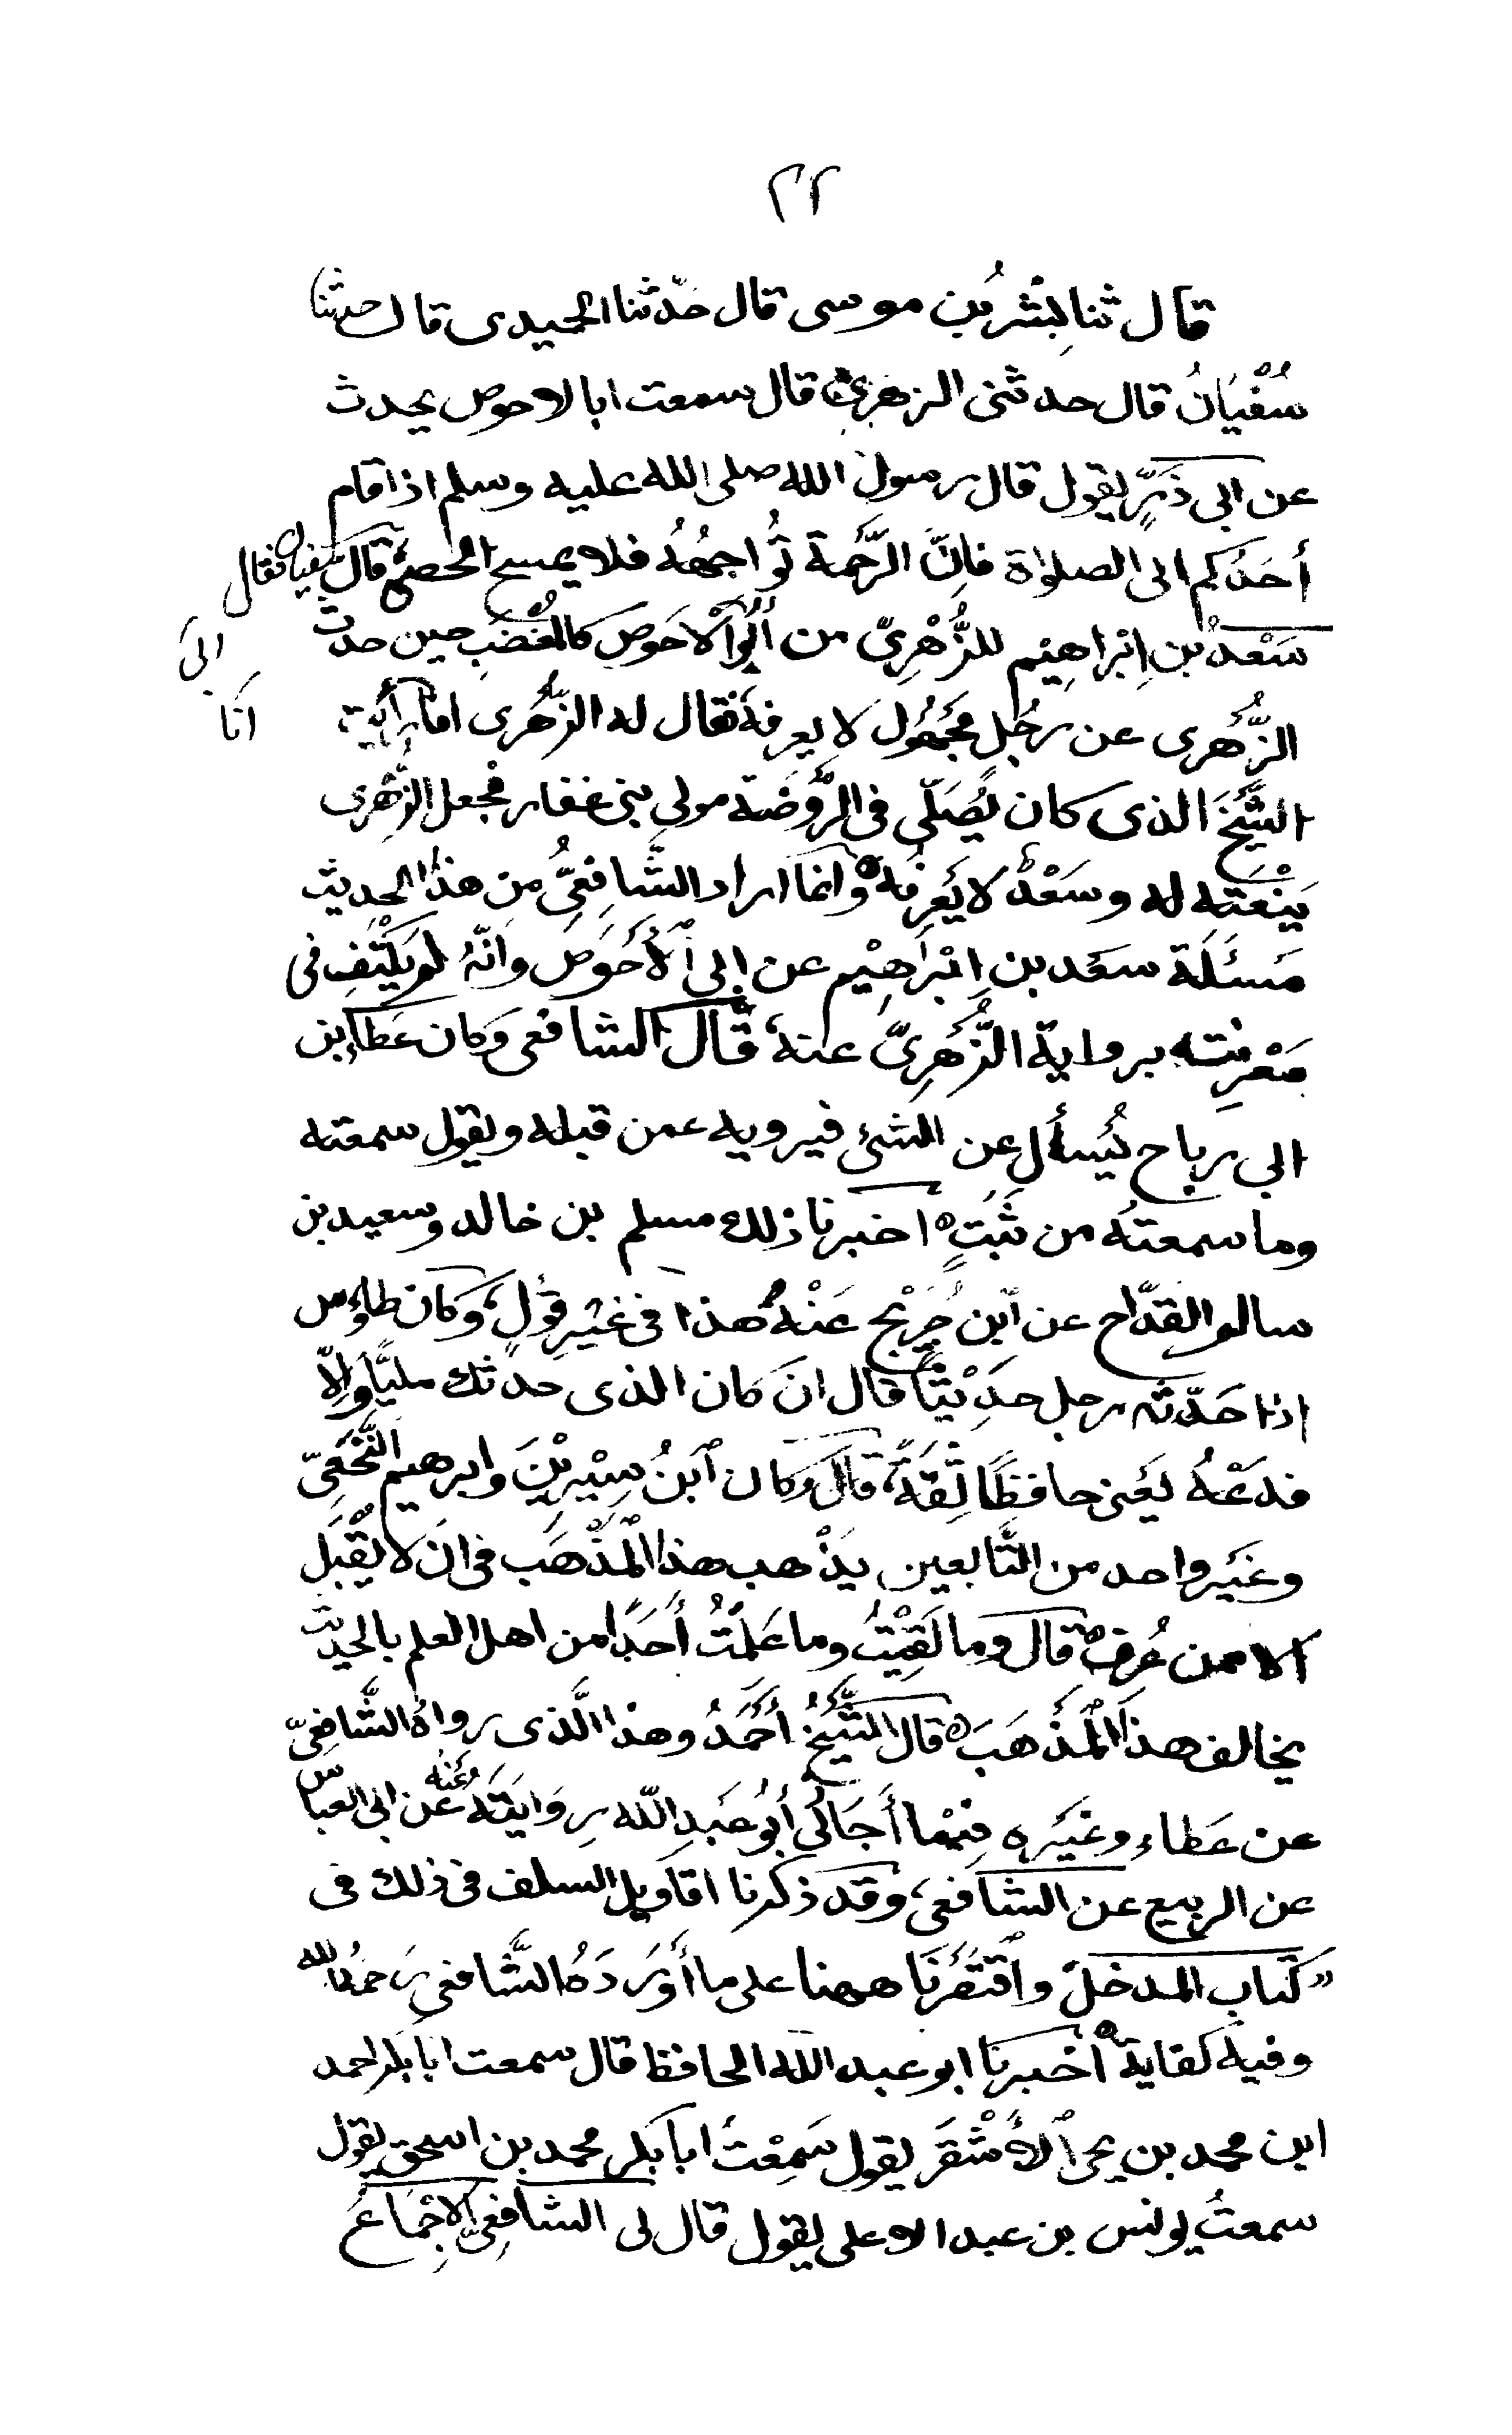 ٢٢
قال ثنا بِشْرُ بن موسى قال حدّثنا الحميدى قال حدثنا
سُفْيَانُ قال حدثنى الزهرىُّ قال سمعت ابا الاحوص يحدث
عن ابى ذَرٍّ يقول قال رسول الله صلى الله عليه وسلم اذا قام
أحَدُكم الى الصلواة فاِنَّ الرَّحْمة تُواجهُهُ فلا يمسح الحصىٰ قال سفيان فقال
سَعْدُ بن اِبْراهِيْم للزُّهْرِىّ من أبُو اْلاَحوَص كالمُغْضَبِ حين حدث
الزُّهْرى عن رجُلٍ مَجْهُول لا يعرفهُ فقال له الزُّهْرى اما رأيت
الى
انا
الشَّيْخَ الذى كان يُصَلّى فى الرَّوْضَة مولى بنى غفار فجعل الزُّهْرى
يَنْعَتِه له وسَعْدٌ لا يَعْرِفُه ه وانما اراد الشَّافِعِىُّ من هذا الحديث
مَسْئَلَة سعد بن اِبْراهِيْم عن ابى اْلأَحْوَصِ وانّهُ لم يَكْتَفِ فى
مَعْرِفته برواية الزُّهْرِىّ عنه، قال الشافعى وكان عَطاء بن
ابى رباح يُسأل عن الشىئ فيرويه عمن قبله ويقول سمعته
وما سمعتُه من ثَبَتٍ ه اخبرنا ذلك مسلم بن خالد وسعيد بن
سالم القدّاح عن ابن جُرَيْج عَنْهُ هذا فى غَيْرِ قَوْلٍ، وكان طاؤس
اذا حَدّثه رجل حدِيْثًا قال ان كان الذى حدثك مليًّا والّا
فدَعْهُ يَعْنى حافِظًا ثِقَةً، قال وكان ابنُ سِيْرِيْنَ وابرهيم النَّخَعِىّ
وغَيْر واحد من التَّابعين يذْهب هذا الْمَذْهَب فى ان لا يَقْبَل
الا ممن عُرِف ه قال وما لَقِيْتُ وما عَلِمْتُ أحَدًا من اهل العلم بالحديث
يخالف هذا الْمَذْهَبَ ه قال الشَّيْخُ أحْمَدُ وهذا الَّذى رواهُ الشَّافِعِىّ
عن عَطاء وغَيْرِه فِيْما أَجَازلى أبُو عَبدِ اللّه رِوَايَتَهُ عَنْهُ عَن ابى العباس
عن الربيع عن الشافعى، وقد ذكرنا اقاويل السلف فى ذلك فى
"كتاب المدخل واقْتَصَرْنَا ههنا على ما أَوْرَدَهُ الشَّافعى رَحمهُ الله
وفيه كفاية ه اخبرنا ابو عبد الله الحافظ قال سمعت ابا بكر احمد
ابن محمد بن يحى اْلأشْقَر يقول سَمِعْتُ ابا بكر محمد بن اسحق يقول
سمعتُ يونس بن عبد الاعلى يقول قال لى الشافعِىّ الاِجْمَاعُ